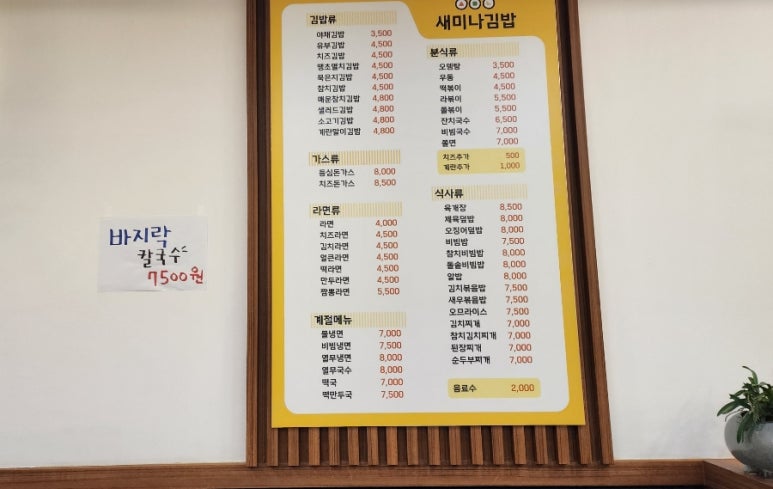 새미나김밥
김밥류
야채김밥 3,500
유부김밥 4,500
치즈김밥 4,500
땡초멸치김밥 4,500
묵은지김밥 4,500
참치김밥 4,500
매운참치김밥 4,800
샐러드김밥 4,800
소고기김밥 4,800
계란말이김밥 4,800
가스류
등심돈가스 8,000
치즈돈가스 8,500
라면류
라면 4,000
치즈라면 4,500
김치라면 4,500
얼큰라면 4,500
떡라면 4,500
만두라면 4,500
짬뽕라면 5,500
계절메뉴
물냉면 7,000
비빔냉면 7,500
열무냉면 8,000
열무국수 8,000
떡국 7,000
떡만두국 7,500
분식류
오뎅탕 3,500
우동 4,500
떡볶이 4,500
라볶이 5,500
쫄볶이 5,500
잔치국수 6,500
비빔국수 7,000
쫄면 7,000
치즈추가 500
계란추가 1,000
식사류
육개장 8,500
제육덮밥 8,000
오징어덮밥 8,000
비빔밥 7,500
참치비빔밥 8,000
돌솥비빔밥 8,000
알밥 8,000
김치볶음밥 7,500
새우볶음밥 7,500
오므라이스 7,500
김치찌개 7,000
참치김치찌개 7,000
된장찌개 7,000
순두부찌개 7,000
음료수 2,000
바지락
칼국수
7500원